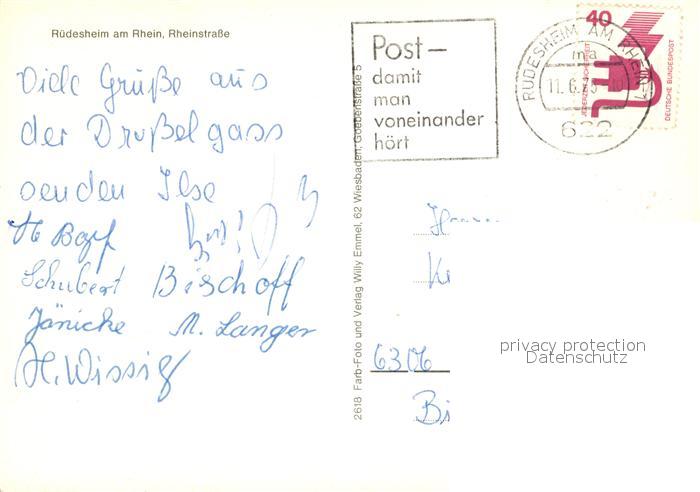 Rüdesheim am Rhein, Rheinstraße
Viele Grüße aus
der Drußelgass
senden Ilse
Schubert Bischoff
Jänicke M. Langer
H. Wissig
2618 Farb-Foto und Verlag Willy Emmel, 62 Wiesbaden, Goebenstraße 5
Post–
damit
man
voneinander
hört
RÜDESHEIM AM RHEIN 1
ma
11.6.75
622
40
JEDERZEIT SICHERHEIT
DEUTSCHE BUNDESPOST
6306
Bi
privacy protection
Datenschutz